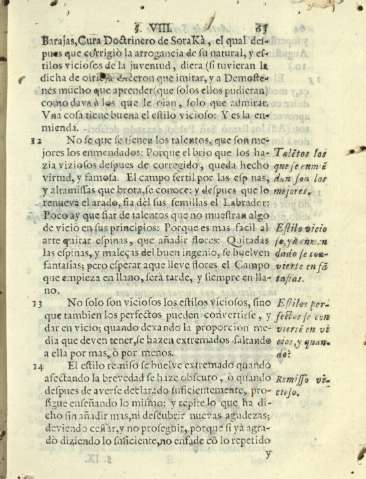 §. VIII. 65
Barajas, Cura Doctrinero de SoraKà, el qual des-
pues que corrigiò la arrogancia de su natural, y es-
tilos viciosos de la juventud, diera (si tuvieran la
dicha de oirle) à Ciceron que imitar, y a Demoste-
nes mucho que aprender (que solos ellos pudieran)
como dava à los que le oian, solo que admirar.
Vna cosa tiene buena el estilo vicioso: Y es la en-
mienda.
12 No se que se tienen los talentos, que son me-
jores los enmendados: Porque el brio que los ha-
zia viziosos despues de corregido, queda hecho
virtud, y famosa. El campo fertil por las espinas,
y altamissas que brota, se conoce: y despues que lo
renueva el arado, fia del sus semillas el Labrador:
Poco ay que fiar de talentos que no muestran algo
de vicio en sus principios: Porque es mas facil al
arte quitar espinas, que añadir flores: Quitadas
las espinas, y maleças del buen ingenio, se buelven
fantasias; pero esperar a que lleve flores el Campo
que empieza en llano, serà tarde, y siempre en lla-
no.
Talẽtos los
que se enmiẽ
dan son los
mejores.
Estilo vicio
so, yà enmen
dado se con-
vierte en fã
tasias.
13 No solo son viciosos los estilos viciosos, sino
que tambien los perfectos pueden convertirse, y
dar en vicio; quando dexando la proporcion me-
dia que deven tener, se hazen extremados faltando
a ella por mas, ò por menos.
Estilos per-
fectos se con
vierten en vi
cios, y quan-
do?
14 El estilo remiso se buelve extremado quando
afectando la brevedad se haze obscuro, ò quando
despues de averse declarado suficientemente, pro-
sigue enseñando lo mismo: y repite lo que ha di-
cho sin añadir mas, ni descubrir nuevas agudezas;
deviendo cessar, y no proseguir, porque si yà agra-
dò diziendo lo suficiente, no enfade cõ lo repetido
Remisso vi-
cioso.
y